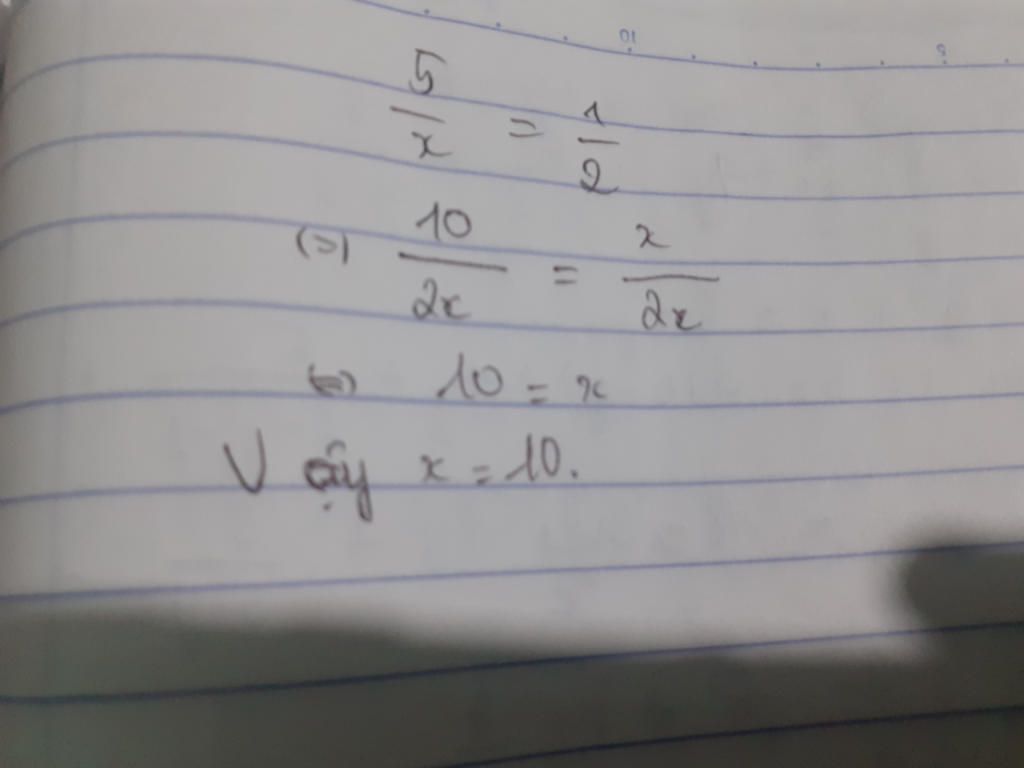 5/x = 1/2
(=) 10/2x = x/2x
(=) 10 = x
Vậy x = 10.